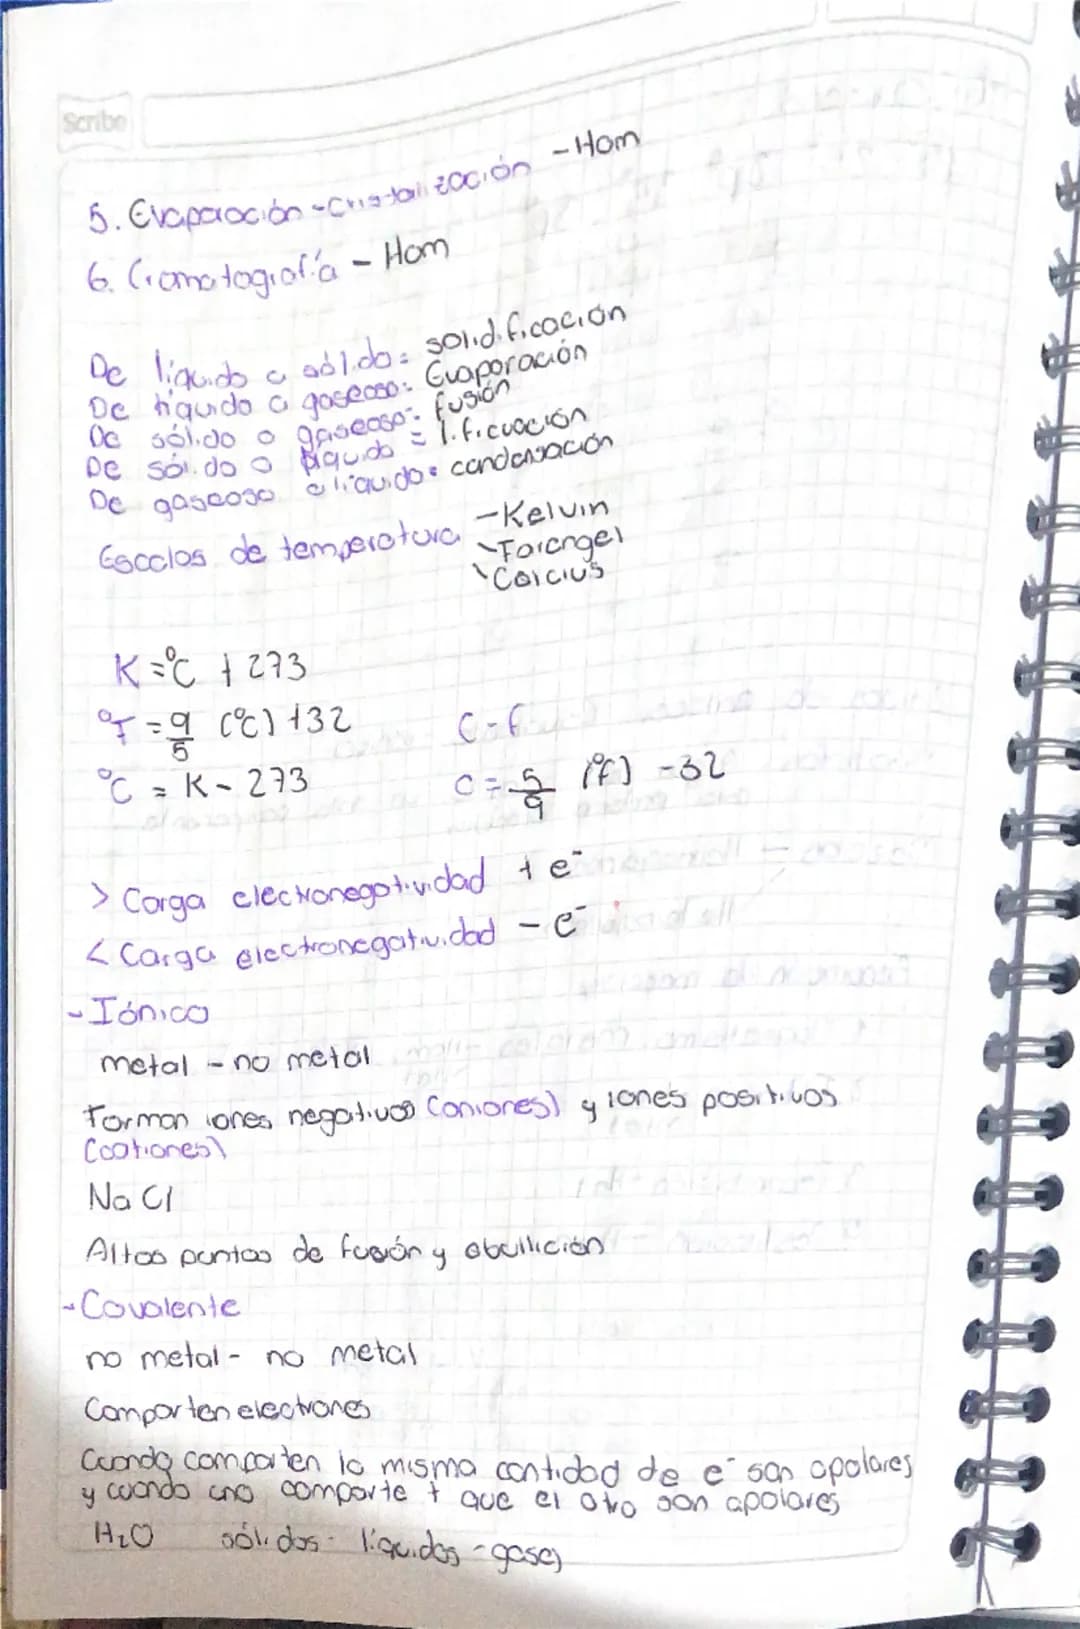 Scribe
5. Evaporación - Cristalización - Hom
6. Cromatografía - Hom
De líquido a sólido = solidificación
De líquido a gaseoso = Evaporación
De sólido a gaseoso = fusión
De sólido a líquido = lificuación
De gaseoso a líquido = condensación
Escalas de temperatura - Kelvin
- Farengel
- Celcius
K = °C + 273
°F = 9/5 (°C) + 32 C = f
°C = K - 273 C = 5/9 (°f) - 32
> Carga electronegatividad + e⁻
< Carga electronegatividad - e⁻
- Iónico
metal - no metal
Forman iones negativos (aniones) y iones positivos
(cationes)
NaCl
Altos puntos de fusión y ebullición
- Covalente
no metal - no metal
Comparten electrones
Cuando comparten la misma cantidad de e⁻ son apolares
y cuando uno comparte + que el otro son apolares
H₂O sólidos - líquidos - gases